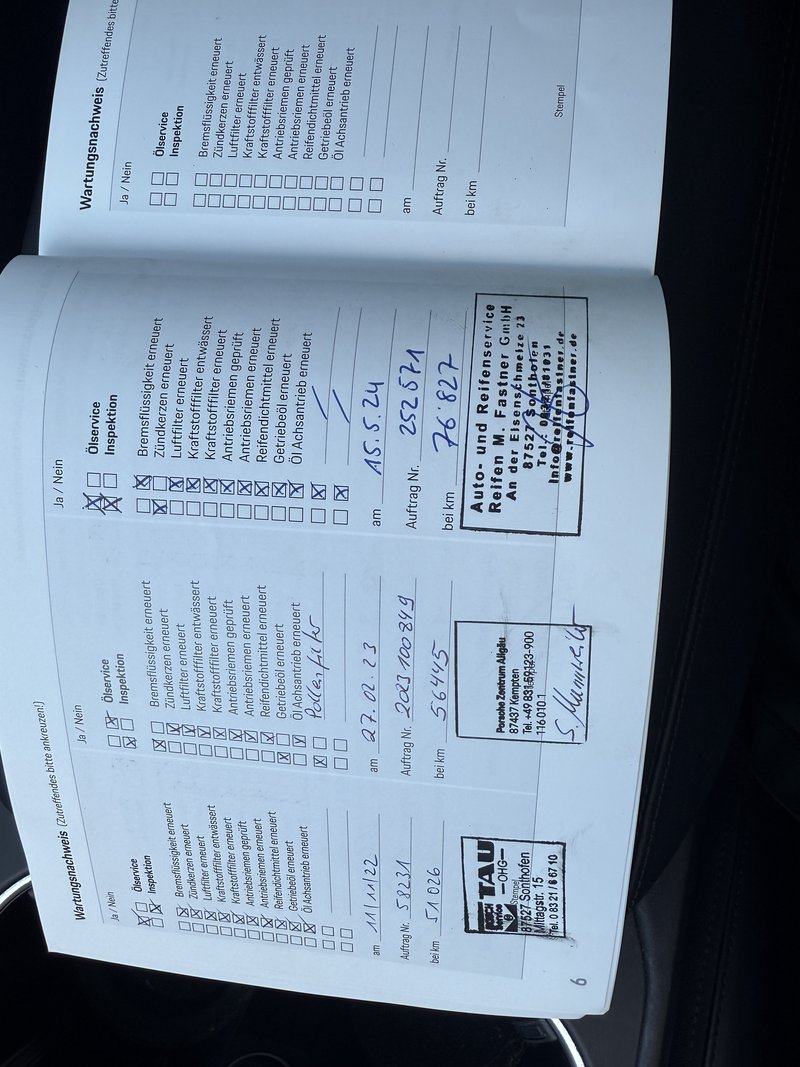 Wartungsnachweis (Zutreffendes bitte ankreuzen!)
Ja / Nein
Ölservice
Inspektion
Bremsflüssigkeit erneuert
Zündkerzen erneuert
Luftfilter erneuert
Kraftstofffilter entwässert
Kraftstofffilter erneuert
Antriebsriemen geprüft
Antriebsriemen erneuert
Reifendichtmittel erneuert
Getriebeöl erneuert
Öl Achsantrieb erneuert
am 11/11/22
Auftrag Nr. 58231
bei km 51026
TAU
—OHG—
Stempel
87527 Sonthofen
Mittagstr. 15
Tel. 0 83 21 / 6 67 10
6
Ja / Nein
Ölservice
Inspektion
Bremsflüssigkeit erneuert
Zündkerzen erneuert
Luftfilter erneuert
Kraftstofffilter entwässert
Kraftstofffilter erneuert
Antriebsriemen geprüft
Antriebsriemen erneuert
Reifendichtmittel erneuert
Getriebeöl erneuert
Öl Achsantrieb erneuert
Pollenfilter
am 27.02.23
Auftrag Nr. 2023100849
bei km 56445
Porsche Zentrum Allgäu
87437 Kempten
Tel. +49 831-59123-900
116 010.1
Ja / Nein
Ölservice
Inspektion
Bremsflüssigkeit erneuert
Zündkerzen erneuert
Luftfilter erneuert
Kraftstofffilter entwässert
Kraftstofffilter erneuert
Antriebsriemen geprüft
Antriebsriemen erneuert
Reifendichtmittel erneuert
Getriebeöl erneuert
Öl Achsantrieb erneuert
am 15.5.24
Auftrag Nr. 252571
bei km 76.827
Auto- und Reifenservice
Reifen M. Fastner GmbH
An der Eisenschmelze 23
87527 Sonthofen
Tel.:
info@reifenfastner.de
www.reifenfastner.de
Wartungsnachweis (Zutreffendes bitte
Ja / Nein
Ölservice
Inspektion
Bremsflüssigkeit erneuert
Zündkerzen erneuert
Luftfilter erneuert
Kraftstofffilter entwässert
Kraftstofffilter erneuert
Antriebsriemen geprüft
Antriebsriemen erneuert
Reifendichtmittel erneuert
Getriebeöl erneuert
Öl Achsantrieb erneuert
am
Auftrag Nr.
bei km
Stempel